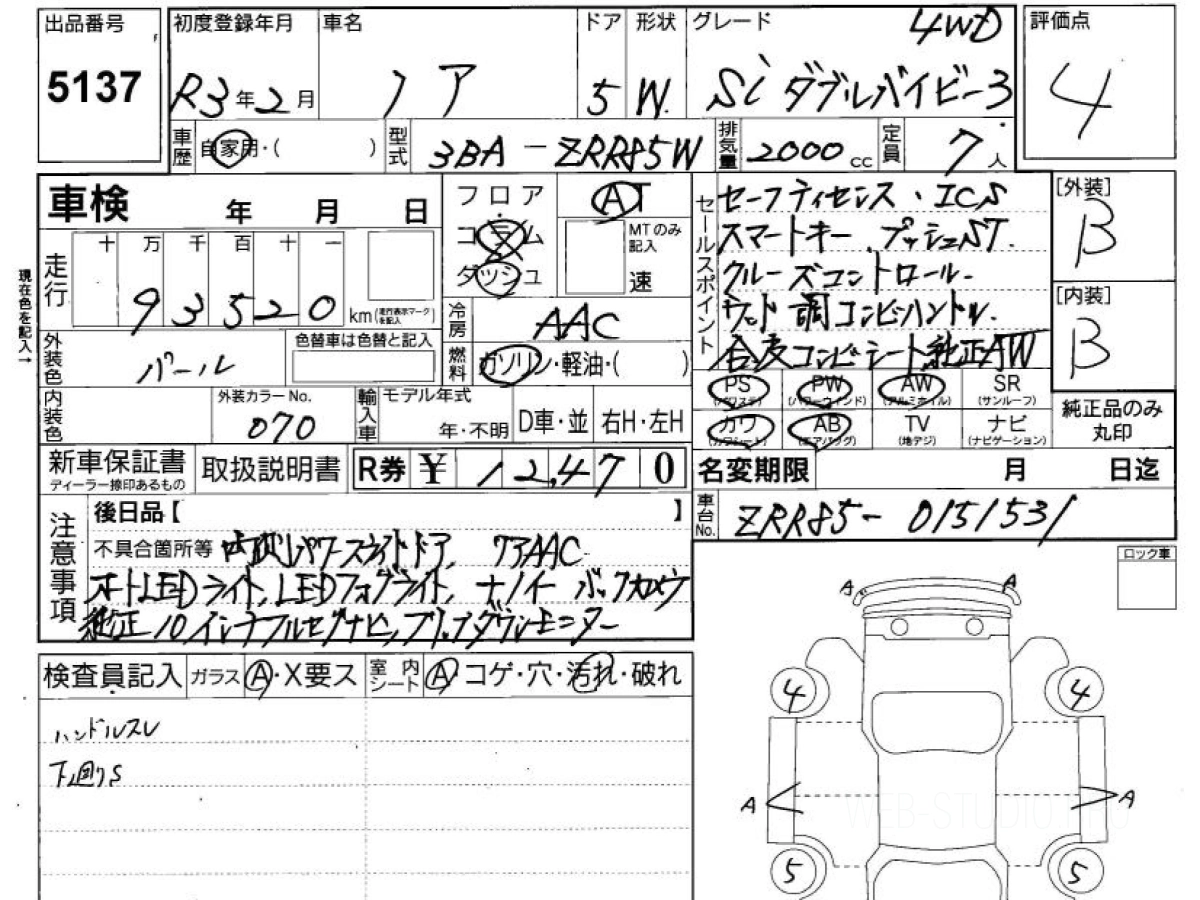 出品番号
5137
初度登録年月
R3年2月
車名
ノア
ドア
5
形状
W.
グレード
4WD
Si ダブルバイビー3
評価点
4
車歴
自家用・( )
型式
3BA-ZRR85W
排気量
2000cc
定員
7人
車検 年 月 日
現在色を記入→
走行
十 万 千 百 十 一
93520km
(走行表示マークを記入)
フロア
コラム
ダッシュ
AT
MTのみ記入
速
冷房
AAC
燃料
ガソリン・軽油・( )
外装色
パール
色替車は色替と記入
内装色
外装カラーNo.
070
輸入車
モデル年式
年・不明
D車・並
右H・左H
セールスポイント
セーフティセンス・ICS
スマートキー、プッシュST.
クルーズコントロール.
ウッド調コンビハンドル.
合皮コンビシート純正AW
[外装]
B
[内装]
B
PS
(パワステ)
PW
(パワーウインド)
AW
(アルミホイル)
SR
(サンルーフ)
カワ
(カワシート)
AB
(エアバッグ)
TV
(地デジ)
ナビ
(ナビゲーション)
純正品のみ
丸印
新車保証書
ディーラー捺印あるもの
取扱説明書
R券 ¥ 12,470
名変期限 月 日迄
車台No.
ZRR85-0151531
注意事項
後日品【 】
不具合箇所等 両側パワースライドドア, WAAC
オートLEDライト, LEDフォグライト, ナノイー バックカメラ
純正10インチフルセグナビ, フリップダウンモニター
ロック車
検査員記入
ガラス
A・X要ス
室内シート
A・コゲ・穴・汚れ・破れ
ハンドルスレ
下廻りS
A
A
4
4
A
A
5
5
WEB-STUDIO.PRO